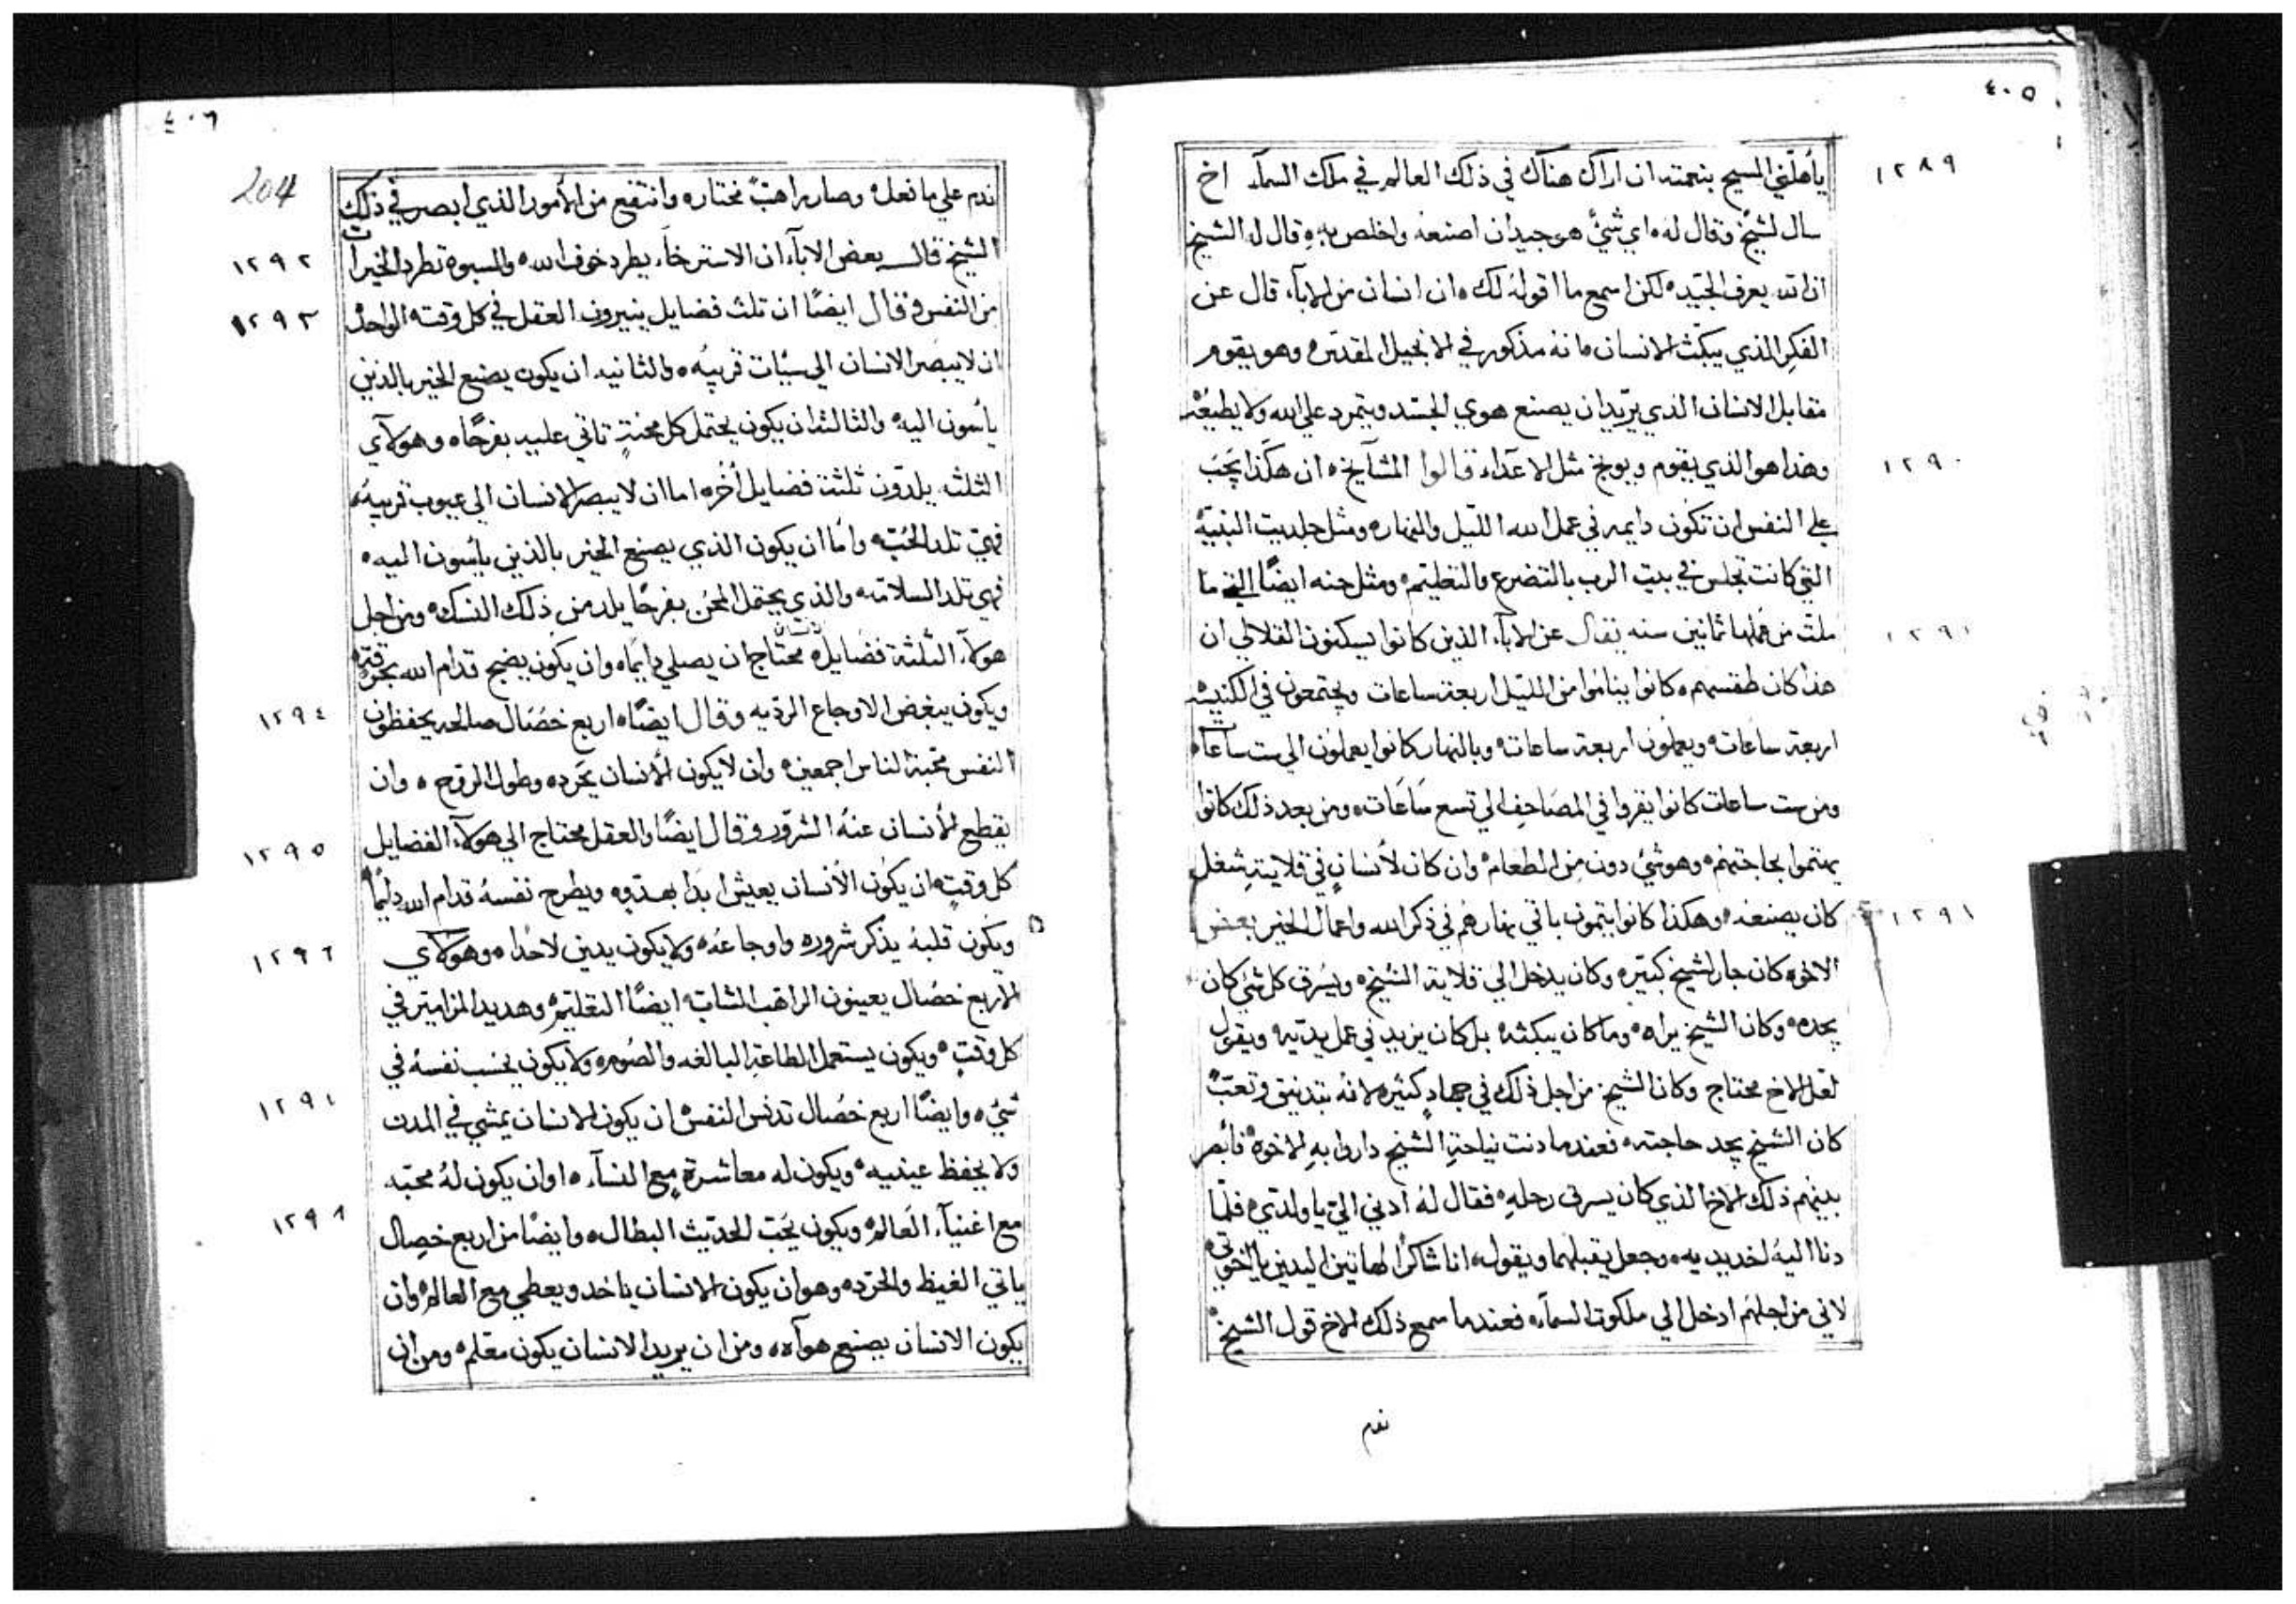 ٤٠٥
١٢٨٩
يأهلني المسيح بنعمته ان اراك هناك في ذلك العالم في ملك السمآء اخ
سال لشيخ وقال له اي شيٍ هو جيد ان اصنعه واخلص به وقال له الشيخ
ان الله يعرف الجيد لكن اسمع ما اقوله لك ان انسان من الابآء قال عن
الفكر الذي يبكت الانسان مانه مذكور في الانجيل المقدس وهو يقوم
مقابل الانسان الذي يريد ان يصنع هوي الجسد ويتمرد علي الله ولا يطيعه
١٢٩٠
وهذا هو الذي يقوم ويوبخ مثل الاعداء قالوا المشايخ ان هكذا يجب
علي النفس ان تكون دايمه في عمل الله الليل والنهار ومثل النبيه
التي كانت تجلس في بيت الرب بالتضرع والتعليم ومثل حنه ايضًا التي ما
١٢٩١
ملت من ثمانين سنه يقال عن الابآء الذين كانوا يسكنون القلالي ان
هذا كان طقسهم كانوا يناموا من الليل اربعة ساعات ويجتمعون في الكنيسه
اربعة ساعات ويعملون اربعة ساعات وبالنهار كانوا يعملون الي ست ساعات
ومن ست ساعات كانوا يقروا في المصاحف الي تسع ساعات ومن بعد ذلك كانوا
يهتموا بحاجتهم وهو شيٍ دون من الطعام وان كان لأنسانٍ في قلايته شغل
١٢٩١
كان يصنعه وهكذا كانوا يتمون باقي نهارهم في ذكر الله واعمال الخير بعض
الاخوه كان جار لشيخ كبير وكان يدخل الي قلاية الشيخ ويسرق كل شيٍ كان
يجده وكان الشيخ يراه وما كان يبكته بل كان يزيد في عمل يديه ويقول
لعل الاخ محتاج وكان الشيخ من اجل ذلك في جهادٍ كثير لانه بتدنيق وتعبٍ
كان الشيخ يجد حاجته فعندما دنت نياحة الشيخ داروا به الاخوه فأبصر
بينهم ذلك الاخ الذي كان يسرق رحله فقال له ادني الي يا ولدي فلما
دنا اليه اخد يديه وجعل يقبلهما ويقول انا شاكرًا لهاتين اليدين يا اخوتي
لاني من اجلهم ادخل الي ملكوت السمآء فعندما سمع ذلك الاخ قول الشيخ
ندم
٤٠٦
204
ندم علي ما فعل وصار راهبٌ مختار وانتفع من الأمور الذي ابصر في ذلك
١٢٩٢
الشيخ قال بعض الابآء ان الاسترخآء يطرد خوف الله والسبوه تطرد الخيرات
١٢٩٣
من النفس وقال ايضًا ان تلث فضايل ينيرون العقل في كل وقت الواحد
ان لا يبصر الانسان الي سيات قريبه والثانيه ان يكون يصنع الخير بالذين
يأسون اليه والثالثه ان يكون يحتمل كل محنةٍ تاتي عليه بفرحًا وهولآي
الثلثه يلدون ثلثة فضايل أخر اما ان لا يبصر الانسان الي عيوب قريبه
فهي تلد الحُب واما ان يكون الذي يصنع الخير بالذين يأسون اليه
فهي تلد السلامه والذي يحتمل المحن بفرحًا يلد من ذلك النسك ومن اجل
هولآء الثلثة فضايل محتاج الانسان ان يصلي دايمًا وان يكون يضج قدام الله بحرقة
١٢٩٤
ويكون يبغض الاوجاع الرديه وقال ايضًا اربع خصال صالحه يحفظون
النفس محبة الناس اجمعين وان لا يكون للأنسان يحرد وطول الروح وان
يقطع الأنسان عنه الشرور وقال ايضًا والعقل محتاج الي هولآء الفضايل
١٢٩٥
كل وقتٍ ان يكون الأنسان يعيش ابدا بهدو ويطرح نفسه قدام الله دايمًا
ويكون قلبه يذكر شروره واوجاعه ولا يكون يدين لاحدا وهولآي
١٢٩٦
الاربع خصال يعينون الراهب الشاب ايضًا التعليم وهديد المزامير في
كل وقتٍ ويكون يستعمل الطاعه البالغه والصوم ولا يكون يحسب نفسه في
شيٍ وايضًا اربع خصال تدنس النفس ان يكون الانسان يمشي في المدن
ولا يحفظ عينيه ويكون له معاشرة مع النسآء او ان يكون له محبه
١٢٩٨
مع اغنيآء العالم ويكون يحب الحديث البطال وايضًا من اربع خصال
ياتي الغيظ والحرد وهو ان يكون الانسان ياخد ويعطي مع العالم وان
يكون الانسان يصنع هوآه ومن ان يريد الانسان يكون معلم ومن ان